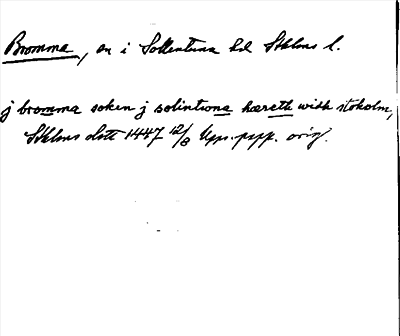 Bromma, sn i Sollentuna hd Sthlms l.
j bromma soken j solintuna hæreth widh stokolm,
Sthlms slott 1447 12/8 Upps. papp. orig.